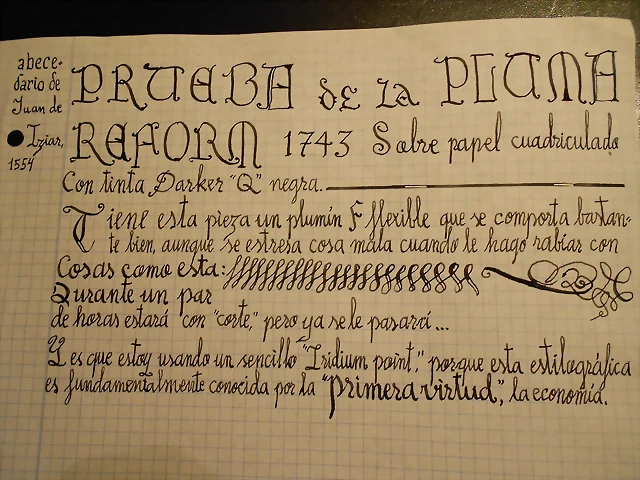 abece-
dario de
Juan de
Iziar,
1554
PRUEBA de la PLUMA
REFORM 1743 Sobre papel cuadriculado
Con tinta Darker "Q" negra.
Tiene esta pieza un plumín F flfexible que se comporta bastan-
te bien, aunque se estresa cosa mala cuando le hago rabiar con
Cosas como esta:
Durante un par
de horas estará con "corte," pero ya se le pasará...
Y es que estoy usando un sencillo "Iridium point," porque esta estilográfica
es fundamentalmente conocida por la "primera virtud", la economía.